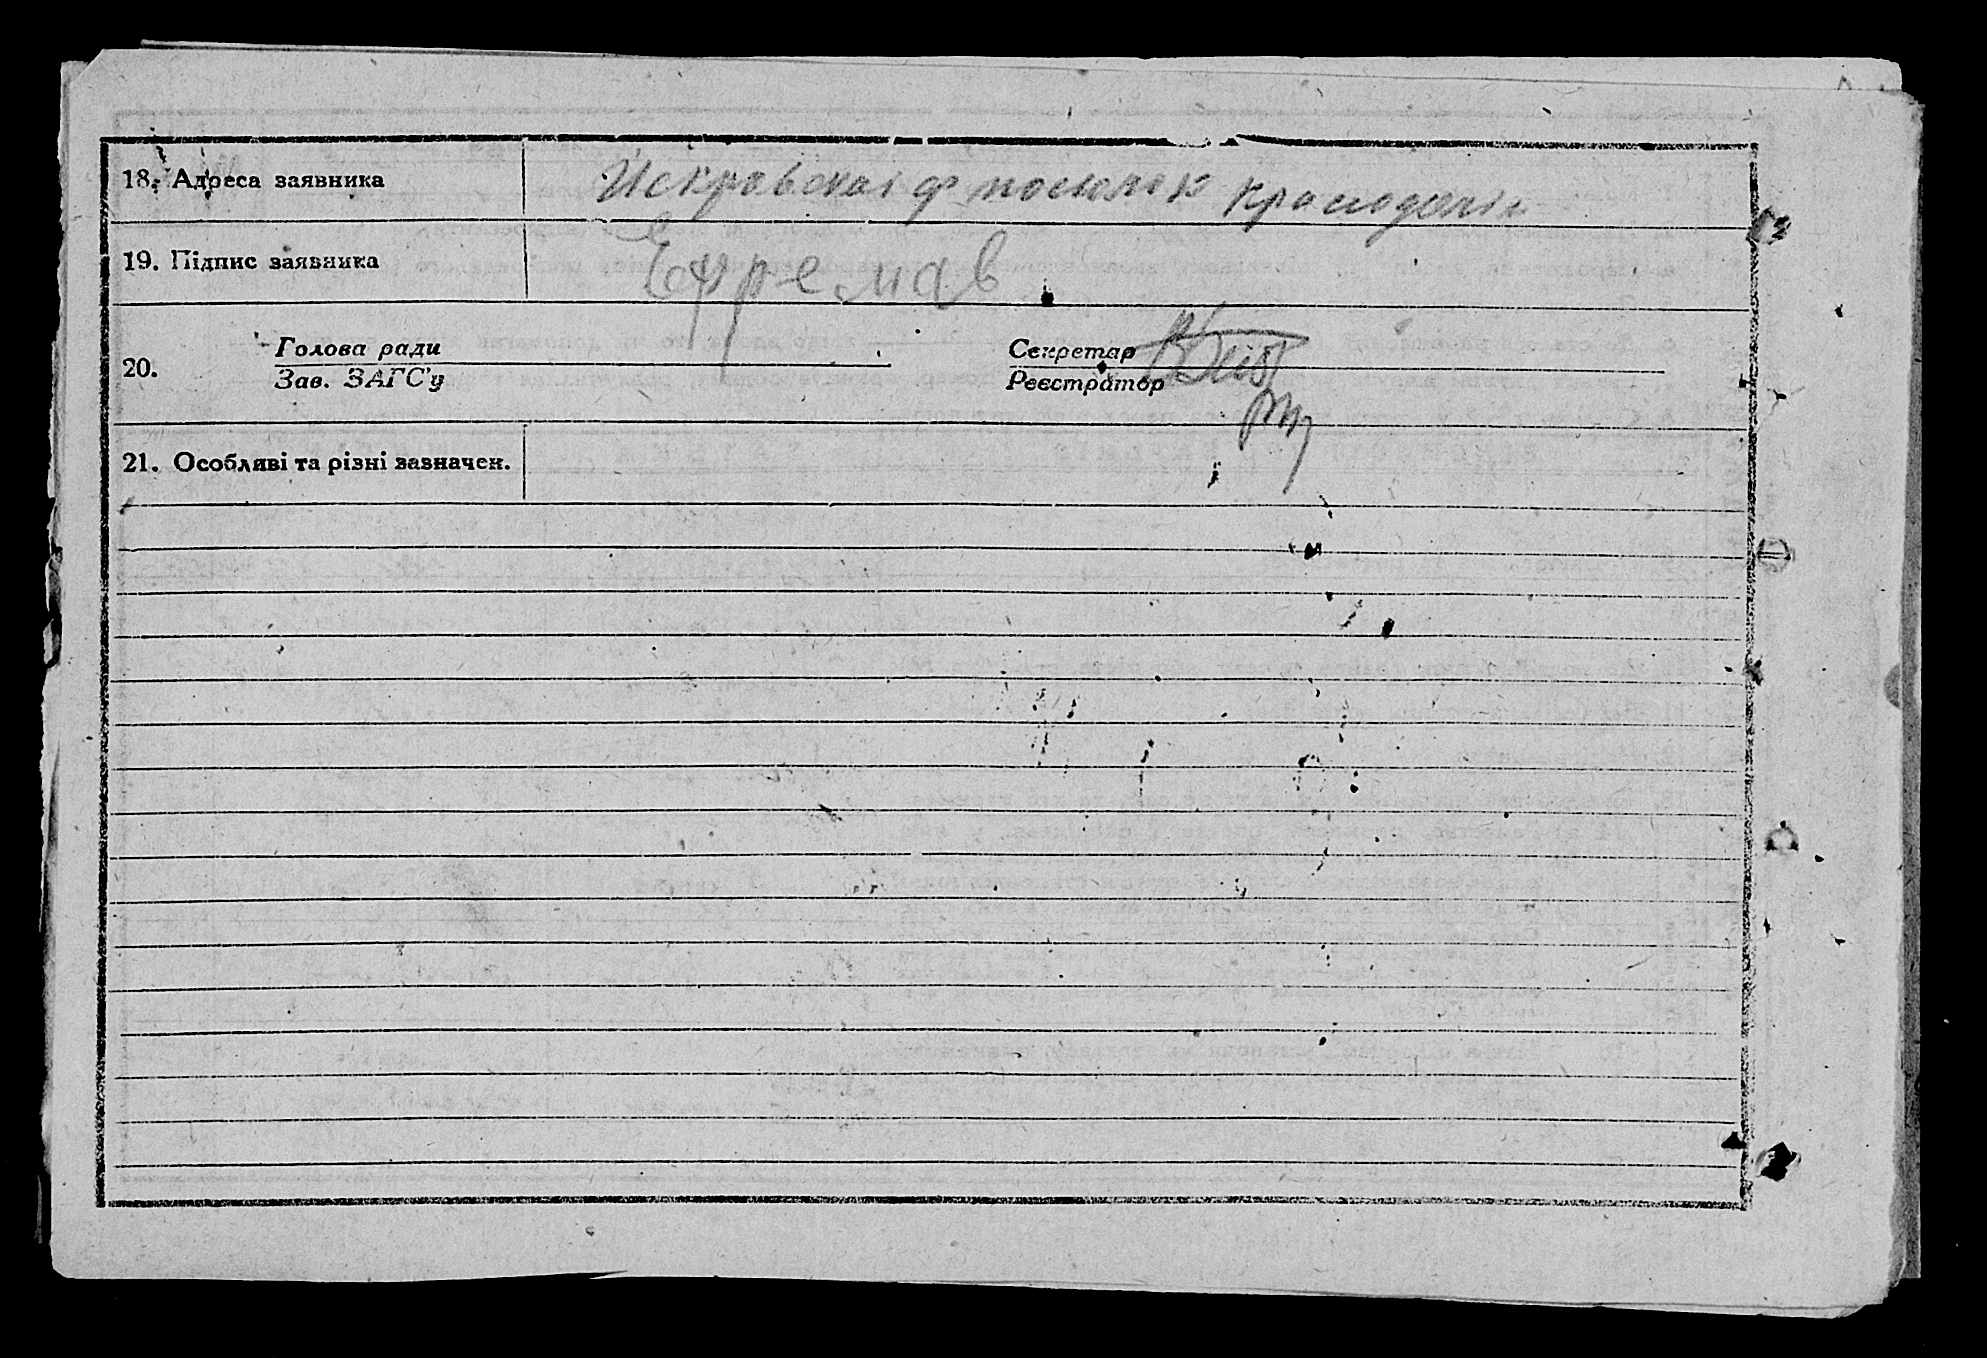 18. Адреса заявника Искровскаi ф поселок
19. Підпис заявника Ефремав
20. Голова ради Секретар
Зав. ЗАГС'у Реєстратор
21. Особливі та різні зазначен.